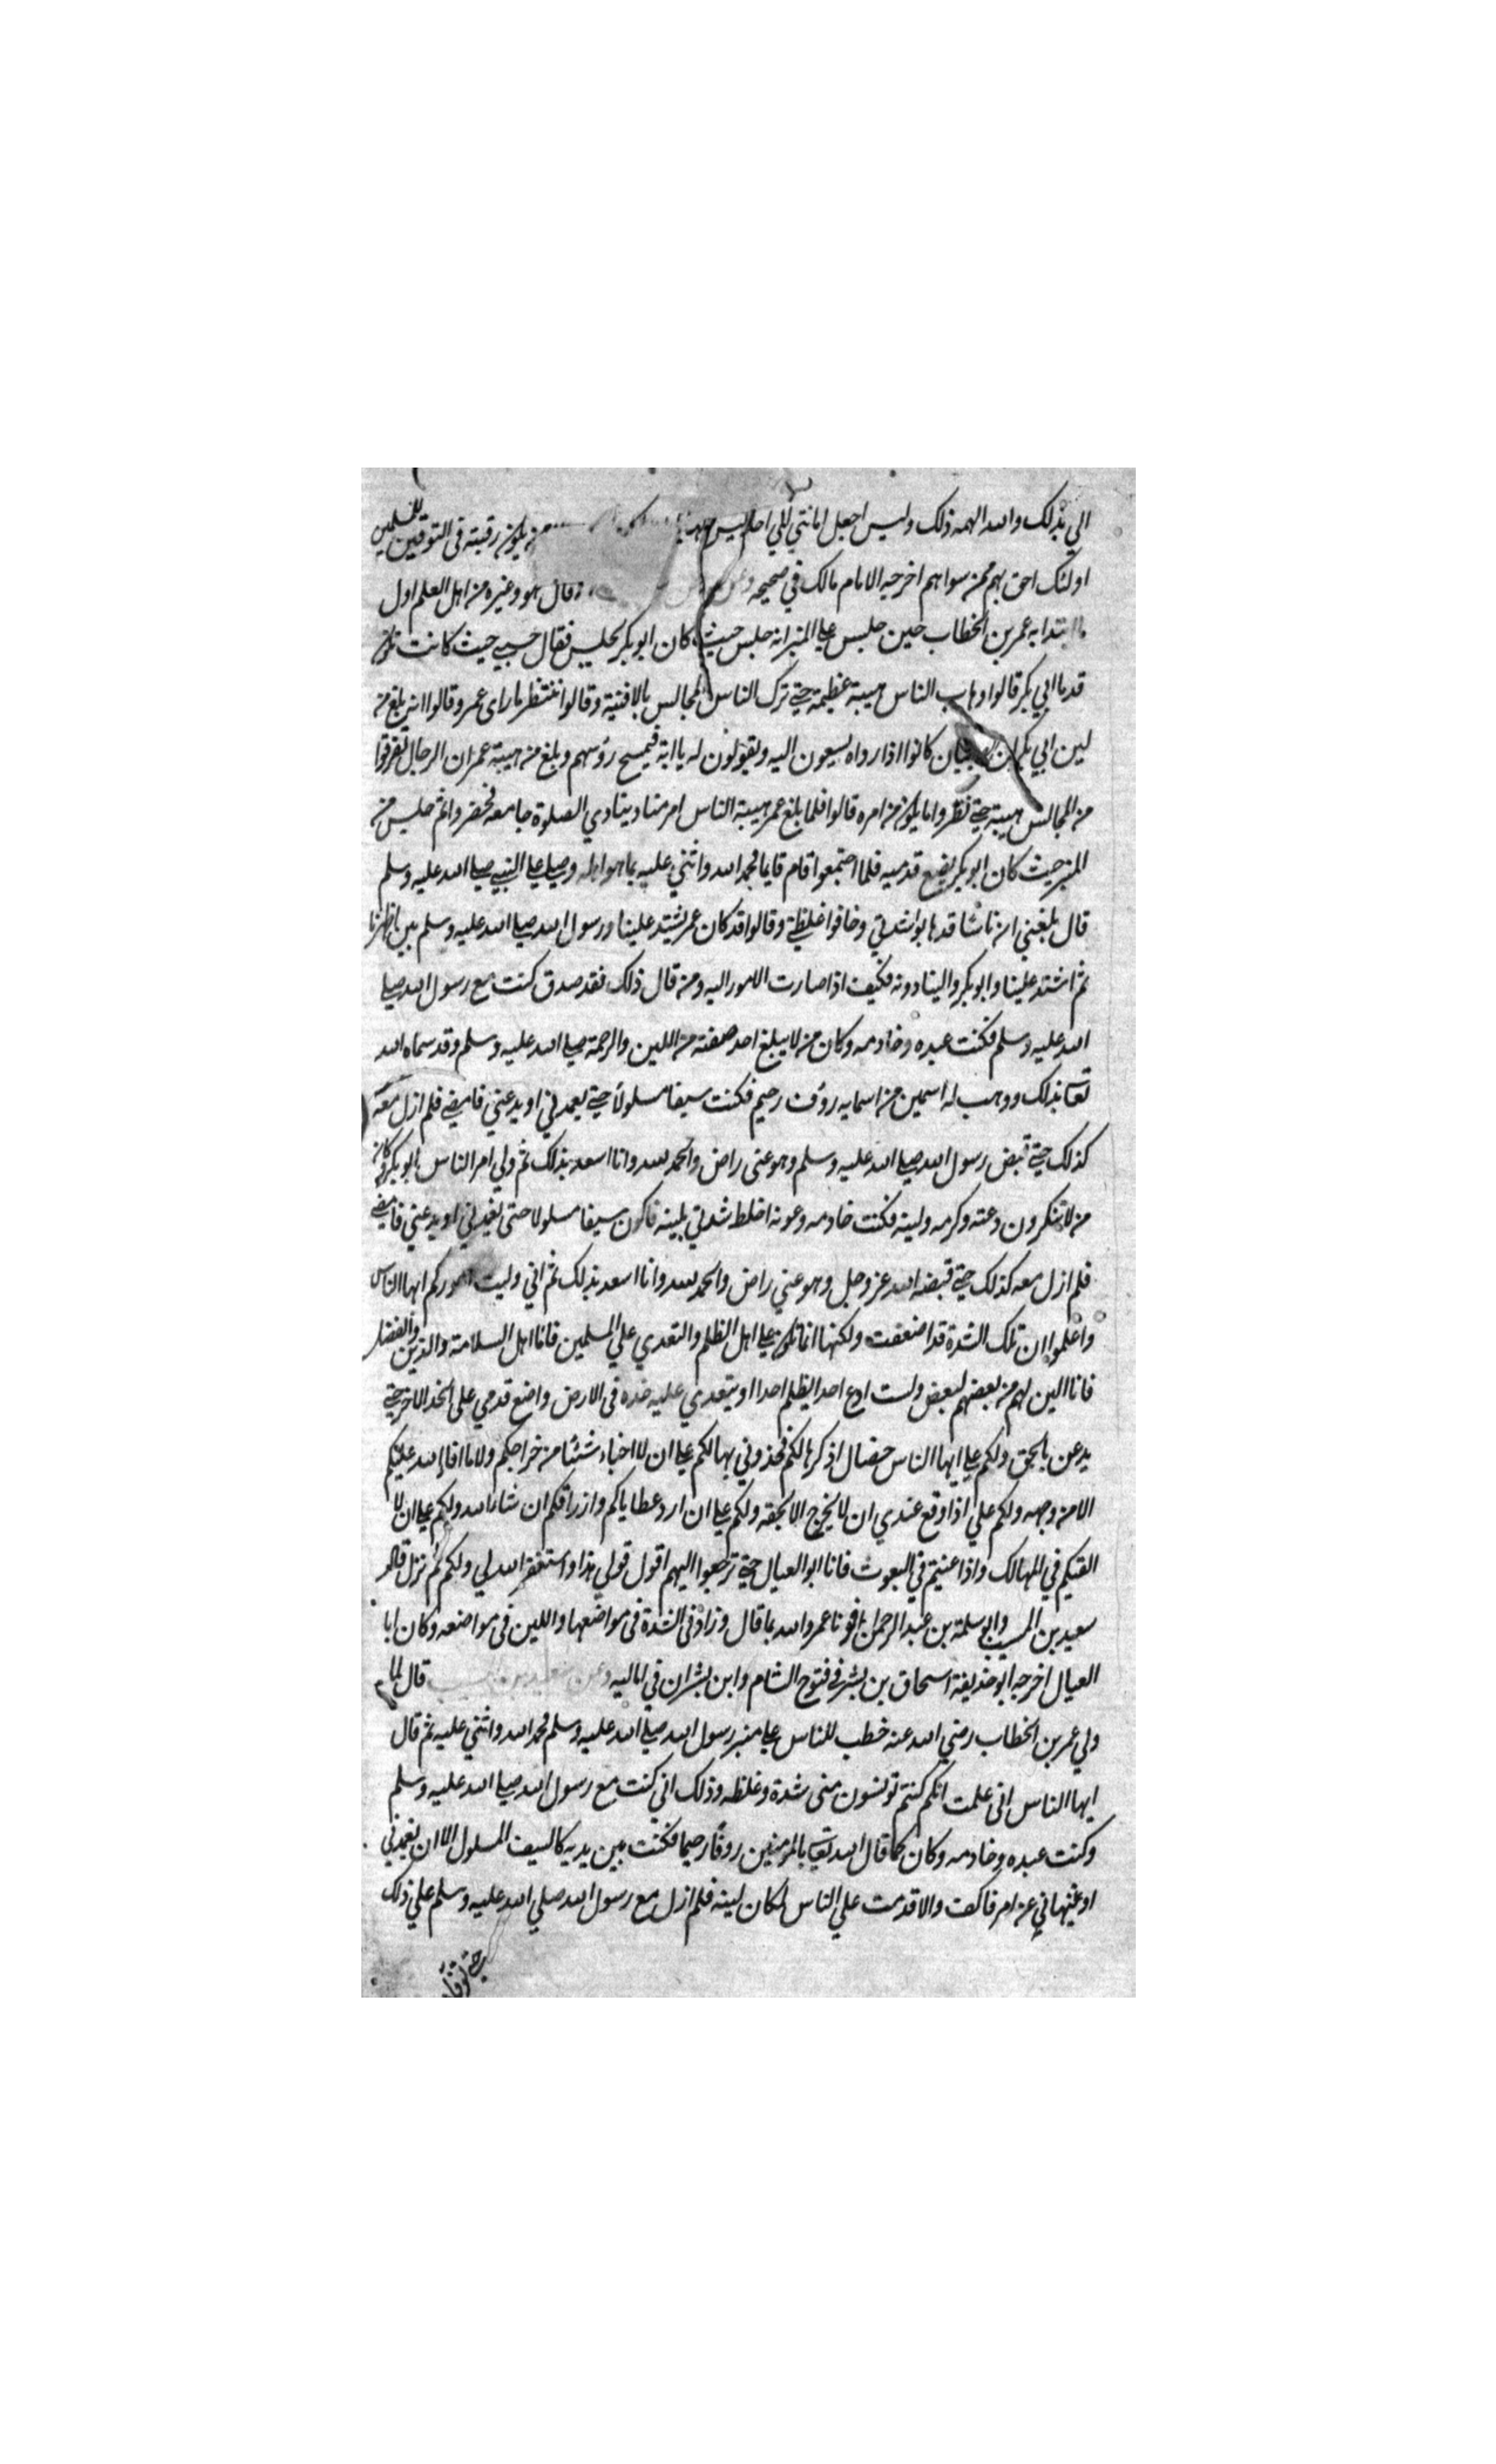 الي بذلك والله الهمه ذلك وليس اجعل امانتي الي احد ليس لها من يكون رقبته في التوقير للمسلمين
اولئك احق بهم ممن سواهم اخرجه الامام مالك في صحيحه وعن قال هو وغيره من اهل العلم اول
ما ابتدا به عمر بن الخطاب حين جلس علي المنبر انه جلس حيث كان ابو بكر يجلس فقال حسبي حيث كانت تكون
قدما ابي بكر قالوا وهاب الناس هيبة عظيمة حتي ترك الناس المجالس بالافنية وقالوا ننتظر ما راى عمر وقالوا انه بلغ من
لين ابي بكر ان الصبيان كانوا اذا راوه يسعون اليه ويقولون له يا ابة فيمسح رؤسهم وبلغ من هيبة عمر ان الرجال تفرقوا
من المجالس هيبة حتي نظروا ما يكون من امره قالوا فلما بلغ عمر هيبة الناس امر مناديا ينادي الصلوة جامعه فحضروا ثم جلس من
المنبر حيث كان ابو بكر يضع قدميه فلما اجتمعوا قام قايما فحمد الله واثني عليه بما هو اهله وصلي علي النبي صلي الله عليه وسلم
قال بلغني ان ناسا قد هابوا شدتي وخافوا غلظتي وقالوا قد كان عمر يشتد علينا ورسول الله صلي الله عليه وسلم بين اظهرنا
ثم اشتد علينا وابو بكر والينا دونه فكيف اذا صارت الامور اليه ومن قال ذلك فقد صدق كنت مع رسول الله صلي
الله عليه وسلم فكنت عبده وخادمه وكان من لا يبلغ احد صفته من اللين والرحمة صلي الله عليه وسلم وقد سماه الله
تعا بذلك ووهب له اسمين من اسمايه رؤف رحيم فكنت سيفا مسلولا حتي يغمدني او يدعني فامضي فلم ازل معه
كذلك حتي قبض رسول الله صلي الله عليه وسلم وهو عني راض والحمد لله وانا اسعد بذلك ثم ولي امر الناس ابو بكر وكان
من لا تنكرون دعته وكرمه ولينه فكنت خادمه وعونه اخلط شدتي بلينه فاكون سيفا مسلولا حتى يغمدني او يدعني فامضي
فلم ازل معه كذلك حتي قبضه الله عز وجل وهو عني راض والحمد لله وانا اسعد بذلك ثم اني وليت اموركم ايها الناس
واعلموا ان تلك الشدة قد اضعفت ولكنها انما تكون علي اهل الظلم والتعدي علي المسلمين فاما اهل السلامة والدين والفضل
فانا الين لهم من بعضهم لبعض ولست ادع احدا يظلم احدا او يتعدي عليه خده في الارض واضع قدمي على الخد الاخر حتي
يذعن بالحق ولكم علي ايها الناس خصال اذكرها لكم فخذوني بها لكم علي ان لا اخباء شئنا من خراجكم ولا ما افاء الله عليكم
الا من وجهه ولكم علي اذا وقع عندي ان لا يخرج الا بحقه ولكم علي ان ارد عطاياكم وارزاقكم ان شاء الله ولكم علي ان لا
القيكم في المهالك واذا غبتم في البعوث فانا ابو العيال حتي ترجعوا اليهم اقول قولي هذا واستغفر الله لي ولكم ثم نزل قال
سعيد بن المسيب وابو سلمة بن عبد الرحمن فو نا عمر والله بما قال وزاد في الشدة في مواضعها واللين في مواضعه وكان ابا
العيال اخرجه ابو حذيفة اسحاق بن بشر في فتوح الشام وابن بشران في اماليه وعن سعيد بن المسيب قال لما
ولي عمر بن الخطاب رضي الله عنه خطب للناس علي منبر رسول الله صلي الله عليه وسلم فحمد الله واثني عليه ثم قال
ايها الناس انى علمت انكم كنتم تونسون منى شدة وغلظه وذلك اني كنت مع رسول الله صلي الله عليه وسلم
وكنت عبده وخادمه وكان كما قال الله تعا بالمومنين روفا رحيما فكنت بين يديه كالسيف المسلول الا ان يغمدني
او ينهاني عن امر فاكف والا قدمت علي الناس لمكان لينه فلم ازل مع رسول الله صلي الله عليه وسلم علي ذلك
حتي توفاه